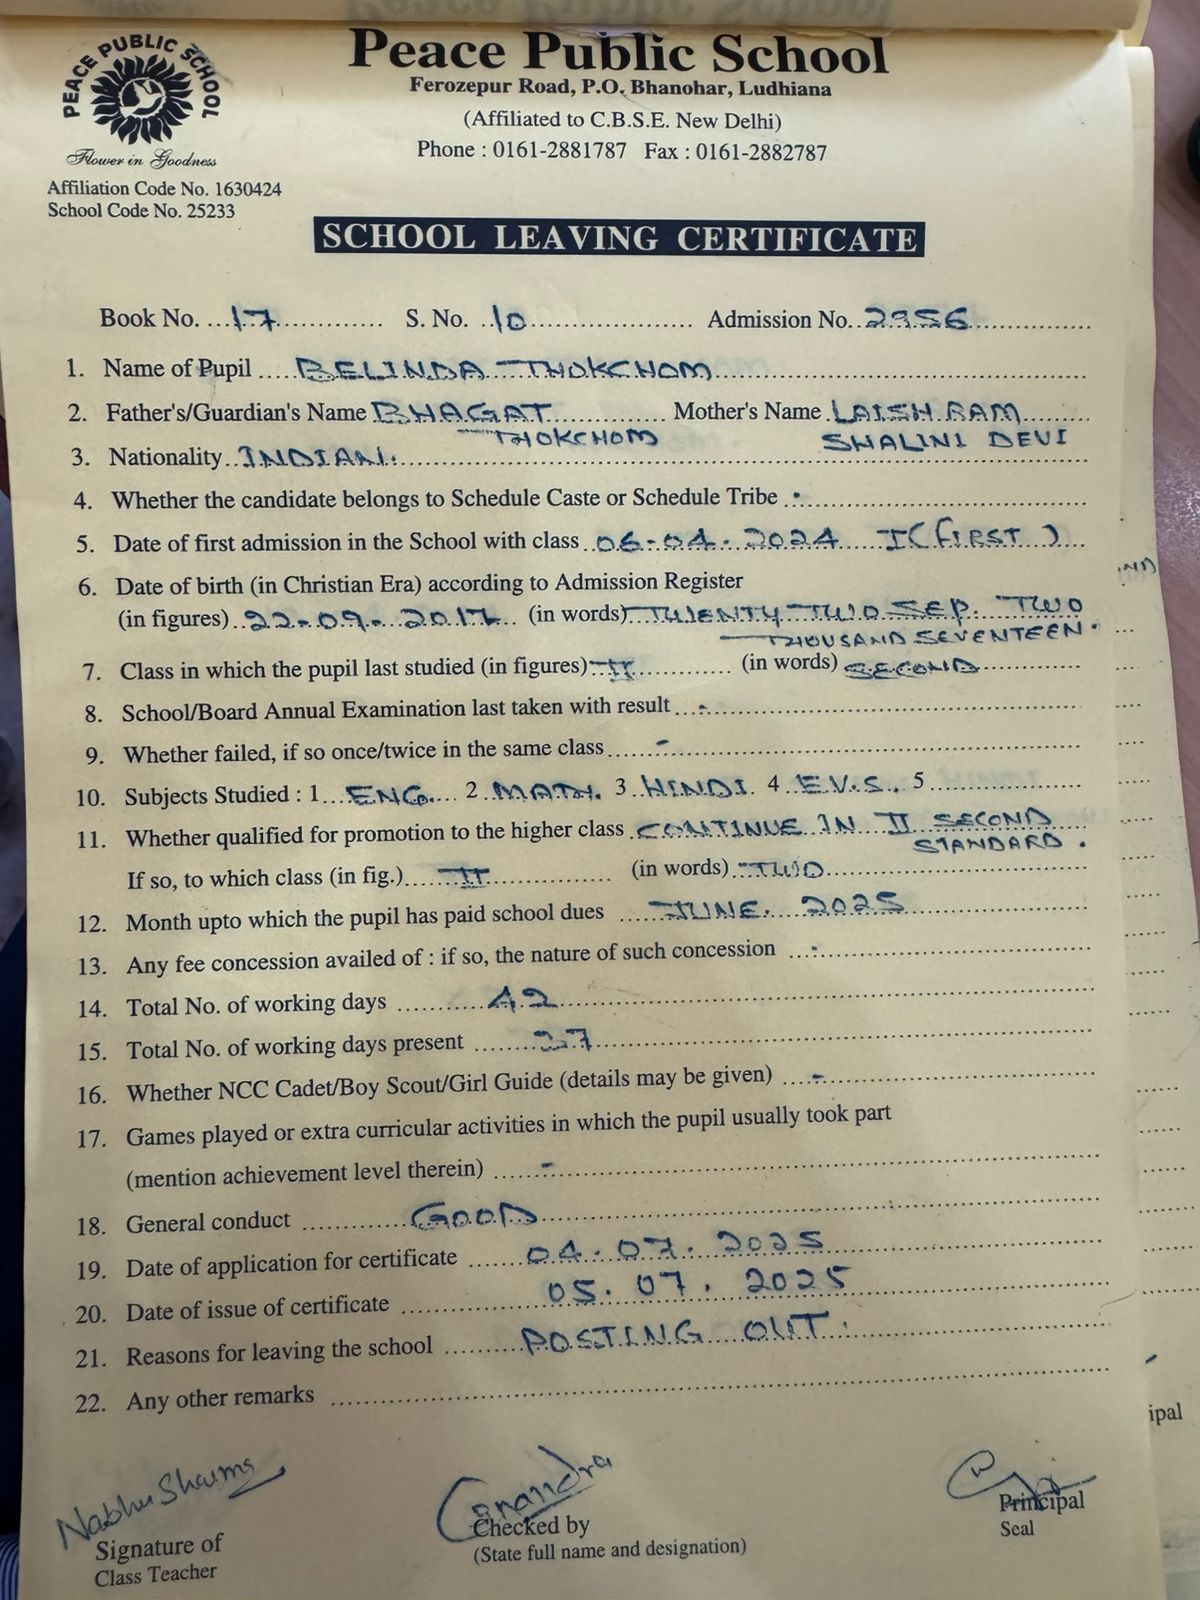 PEACE PUBLIC SCHOOL
Flower in Goodness
Affiliation Code No. 1630424
School Code No. 25233
Peace Public School
Ferozepur Road, P.O. Bhanohar, Ludhiana
(Affiliated to C.B.S.E. New Delhi)
Phone : 0161-2881787 Fax : 0161-2882787
SCHOOL LEAVING CERTIFICATE
Book No. 17 S. No. 10 Admission No. 2956
1. Name of Pupil BELINDA THOKCHOM
2. Father's/Guardian's Name BHAGAT Mother's Name LAISHRAM
THOKCHOM SHALINI DEVI
3. Nationality INDIAN.
4. Whether the candidate belongs to Schedule Caste or Schedule Tribe -
5. Date of first admission in the School with class 06-04-2024 I (FIRST)
6. Date of birth (in Christian Era) according to Admission Register
(in figures) 22-09-2017 (in words) TWENTY TWO SEP. TWO
THOUSAND SEVENTEEN.
7. Class in which the pupil last studied (in figures) II (in words) SECOND
8. School/Board Annual Examination last taken with result -
9. Whether failed, if so once/twice in the same class -
10. Subjects Studied : 1 ENG. 2 MATH. 3 HINDI. 4 E.V.S. 5
11. Whether qualified for promotion to the higher class CONTINUE IN II SECOND
STANDARD.
If so, to which class (in fig.) II (in words) TWO
12. Month upto which the pupil has paid school dues JUNE. 2025
13. Any fee concession availed of : if so, the nature of such concession -
14. Total No. of working days 42
15. Total No. of working days present 37
16. Whether NCC Cadet/Boy Scout/Girl Guide (details may be given) -
17. Games played or extra curricular activities in which the pupil usually took part
(mention achievement level therein) -
18. General conduct GOOD
19. Date of application for certificate 04.07.2025
20. Date of issue of certificate 05.07.2025
21. Reasons for leaving the school POSTING OUT.
22. Any other remarks
ipal
Sharma
Signature of
Class Teacher
Checked by
(State full name and designation)
Principal
Seal